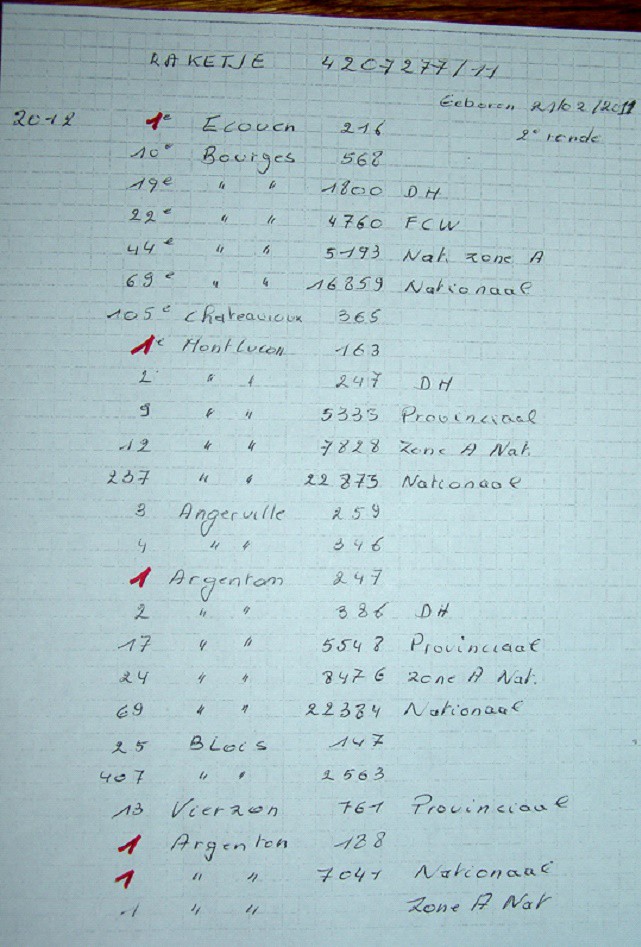 RAKETJE 4207277/11
Geboren 21/02/2011
2012 1e Ecouen 216 2e ronde
10e Bourges 568
19e " " 1800 DH
22e " " 4760 FCW
44e " " 5193 Nat. zone A
69e " " 16859 Nationaal
105e Chateauroux 365
1e Montlucon 163
2 " " 247 DH
9 " " 5335 Provinciaal
12 " " 7828 Zone A Nat.
237 " " 22873 Nationaal
3 Angerville 259
4 " " 346
1 Argenton 247
2 " " 386 DH
17 " " 5548 Provinciaal
24 " " 8476 Zone A Nat.
69 " " 22384 Nationaal
25 Blois 147
407 " " 2563
13 Vierzon 761 Provinciaal
1 Argenton 188
1 " " 7041 Nationaal
1 " " Zone A Nat